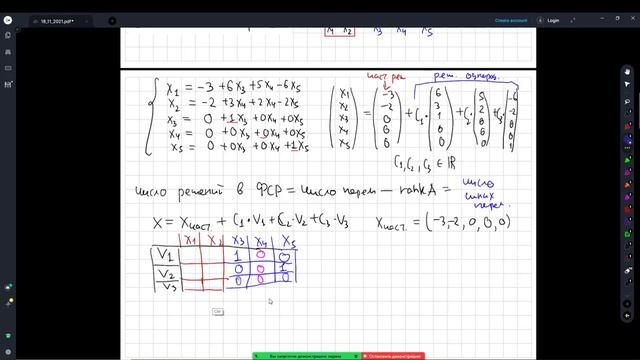 18_11_2021.pdf*
Create account
Login
x₁ x₂ x₃ x₄ x₅
x₁ = -3 + 6x₃ + 5x₄ - 6x₅
x₂ = -2 + 3x₄ + 2x₄ - 2x₅
x₃ = 0 + 1x₃ + 0x₄ + 0x₅
x₄ = 0 + 0x₃ + 0x₄ + 0x₅
x₅ = 0 + 0x₃ + 0x₄ + 1x₅
част реш
реш. однород.
(x₁ x₂ x₃ x₄ x₅) = (-3 -2 0 0 0) + C₁· (6 3 1 0 0) + C₂· (5 2 0 0 0) + C₃· (-6 -2 0 0 1)
C₁, C₂, C₃ ∈ ℝ
число решений в ФСР = число перем — rank A = число
перем.
X = Xчаст. + C₁·V₁ + C₂·V₂ + C₃·V₃ Xчаст. = (-3, -2, 0, 0, 0)
x₁ x₂ x₃ x₄ x₅
V₁ 1 0 0
V₂ 0 0 1
V₃ 0 0 0
Ctrl
Вы запустили демонстрацию экрана
Остановить демонстрацию